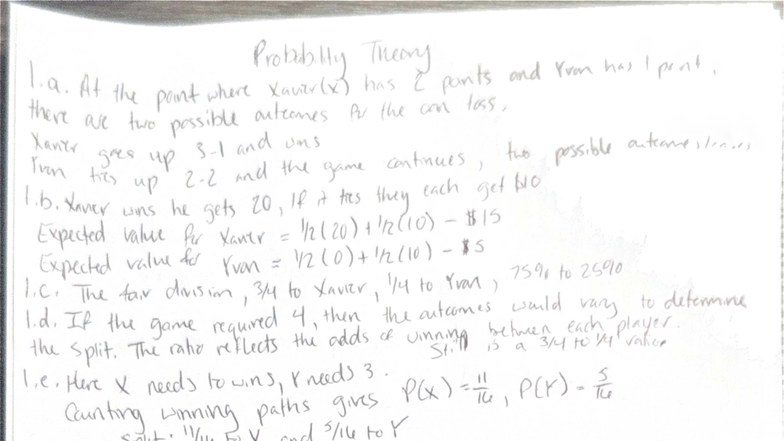 Probability Theory
1.a. At the point where Xavier(x) has 2 points and Yvon has 1 point,
there are two possible outcomes for the coin toss,
Xavier goes up 3-1 and wins
Yvon ties up 2-2 and the game continues, two possible outcomes
1.b. Xavier wins he gets 20, If it ties they each get $10
Expected value for Xavier = 1/2(20) + 1/2(10) - $15
Expected value for Yvon = 1/2(0) + 1/2(10) - $5
1.c. The fair division, 3/4 to Xavier, 1/4 to Yvon, 75% to 25%
1.d. If the game required 4, then the outcomes would vary to determine
the split. The ratio reflects the odds of winning between each player.
Still is a 3/4 to 1/4 ratio
1.e. Here X needs to wins, Y needs 3.
Counting winning paths gives P(X) = 11/16, P(Y) = 5/16
Split: 11/16 to X and 5/16 to Y